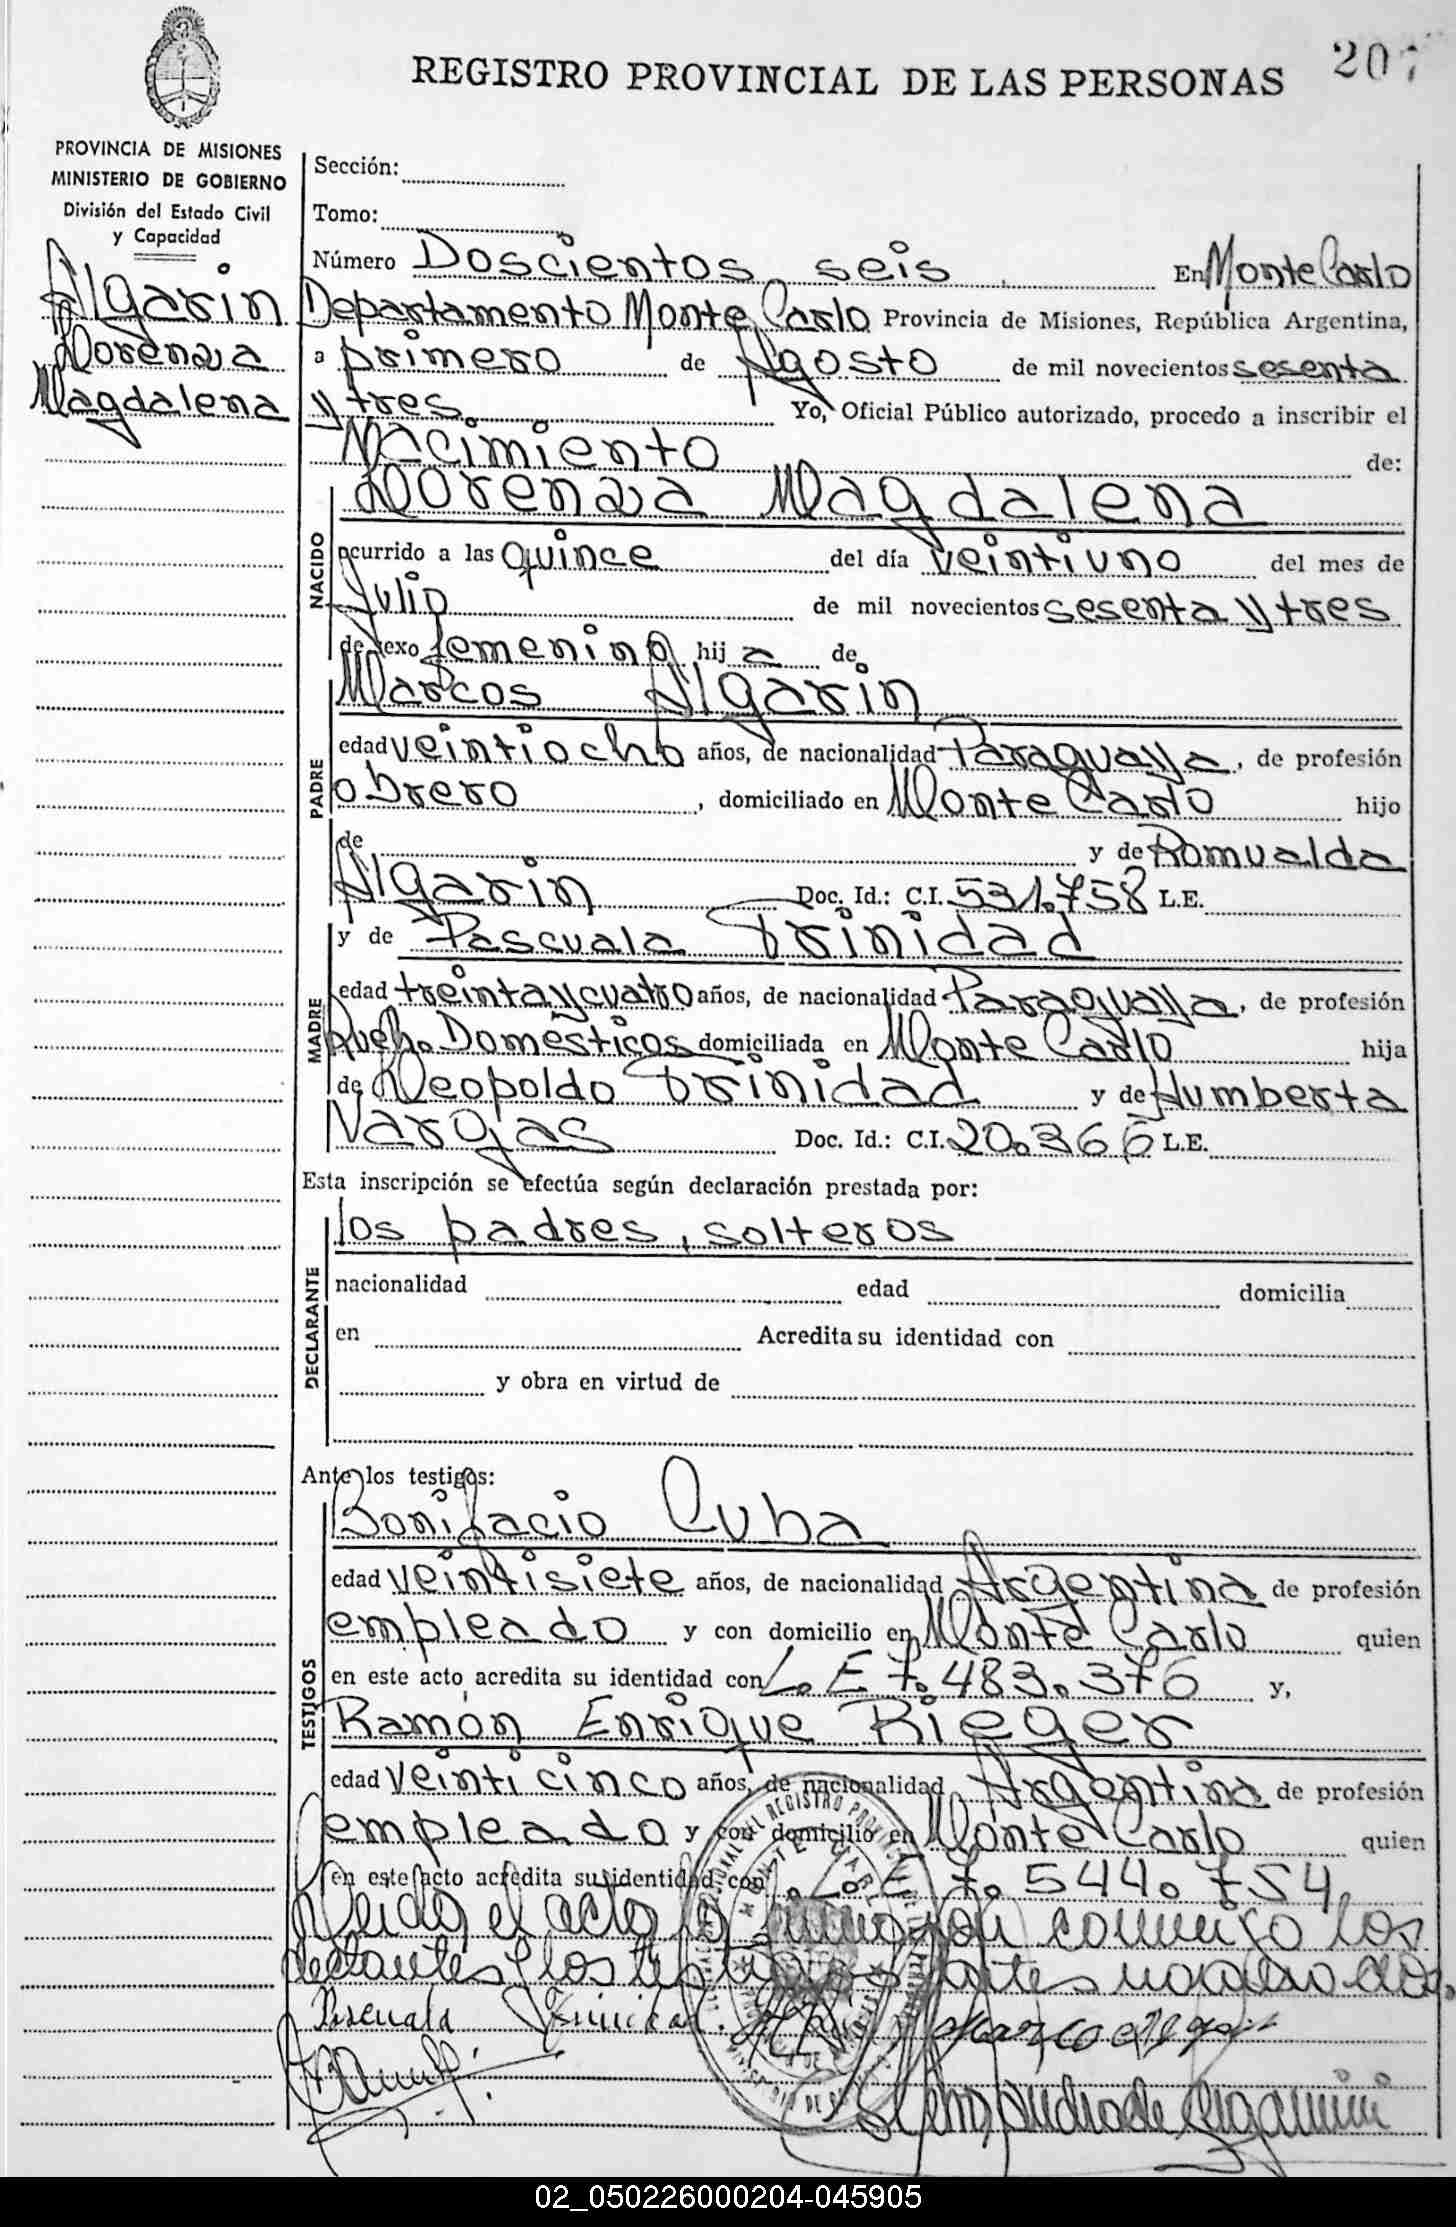 REGISTRO PROVINCIAL DE LAS PERSONAS
207
PROVINCIA DE MISIONES
MINISTERIO DE GOBIERNO
División del Estado Civil
y Capacidad
Algarin
Lorenza
Magdalena
Sección:
Tomo:
Número Doscientos seis En Monte Carlo
Departamento Monte Carlo Provincia de Misiones, República Argentina,
a primero de Agosto de mil novecientos sesenta
y tres Yo, Oficial Público autorizado, procedo a inscribir el
Nacimiento de:
NACIDO
Lorenza Magdalena
ocurrido a las quince del día veintiuno del mes de
Julio de mil novecientos sesenta y tres
de sexo femenino hij a de
PADRE
Marcos Algarin
edad veintiocho años, de nacionalidad Paraguaya, de profesión
obrero, domiciliado en Monte Carlo hijo
de y de Romualda
Algarin Doc. Id.: C.I. 531.758 L.E.
MADRE
y de Pascuala Trinidad
edad treinta y cuatro años, de nacionalidad Paraguaya, de profesión
Queh. Domésticos domiciliada en Monte Carlo hija
de Leopoldo Trinidad y de Humberta
Vargas Doc. Id.: C.I. 20.366 L.E.
Esta inscripción se efectúa según declaración prestada por:
DECLARANTE
los padres, solteros
nacionalidad edad domicilia
en Acredita su identidad con
y obra en virtud de
Ante los testigos:
TESTIGOS
Bonifacio Cuba
edad veintisiete años, de nacionalidad Argentina de profesión
empleado y con domicilio en Monte Carlo quien
en este acto acredita su identidad con L. E 7.483.376 y,
Ramón Enrique Rieger
edad veinti cinco años, de nacionalidad Argentina de profesión
empleado y con domicilio en Monte Carlo quien
en este acto acredita su identidad con L. E 7.544.754,
Leida el acta la conmigo los
y los testigos antes
Pascuala Trinidad.
02_050226000204-045905